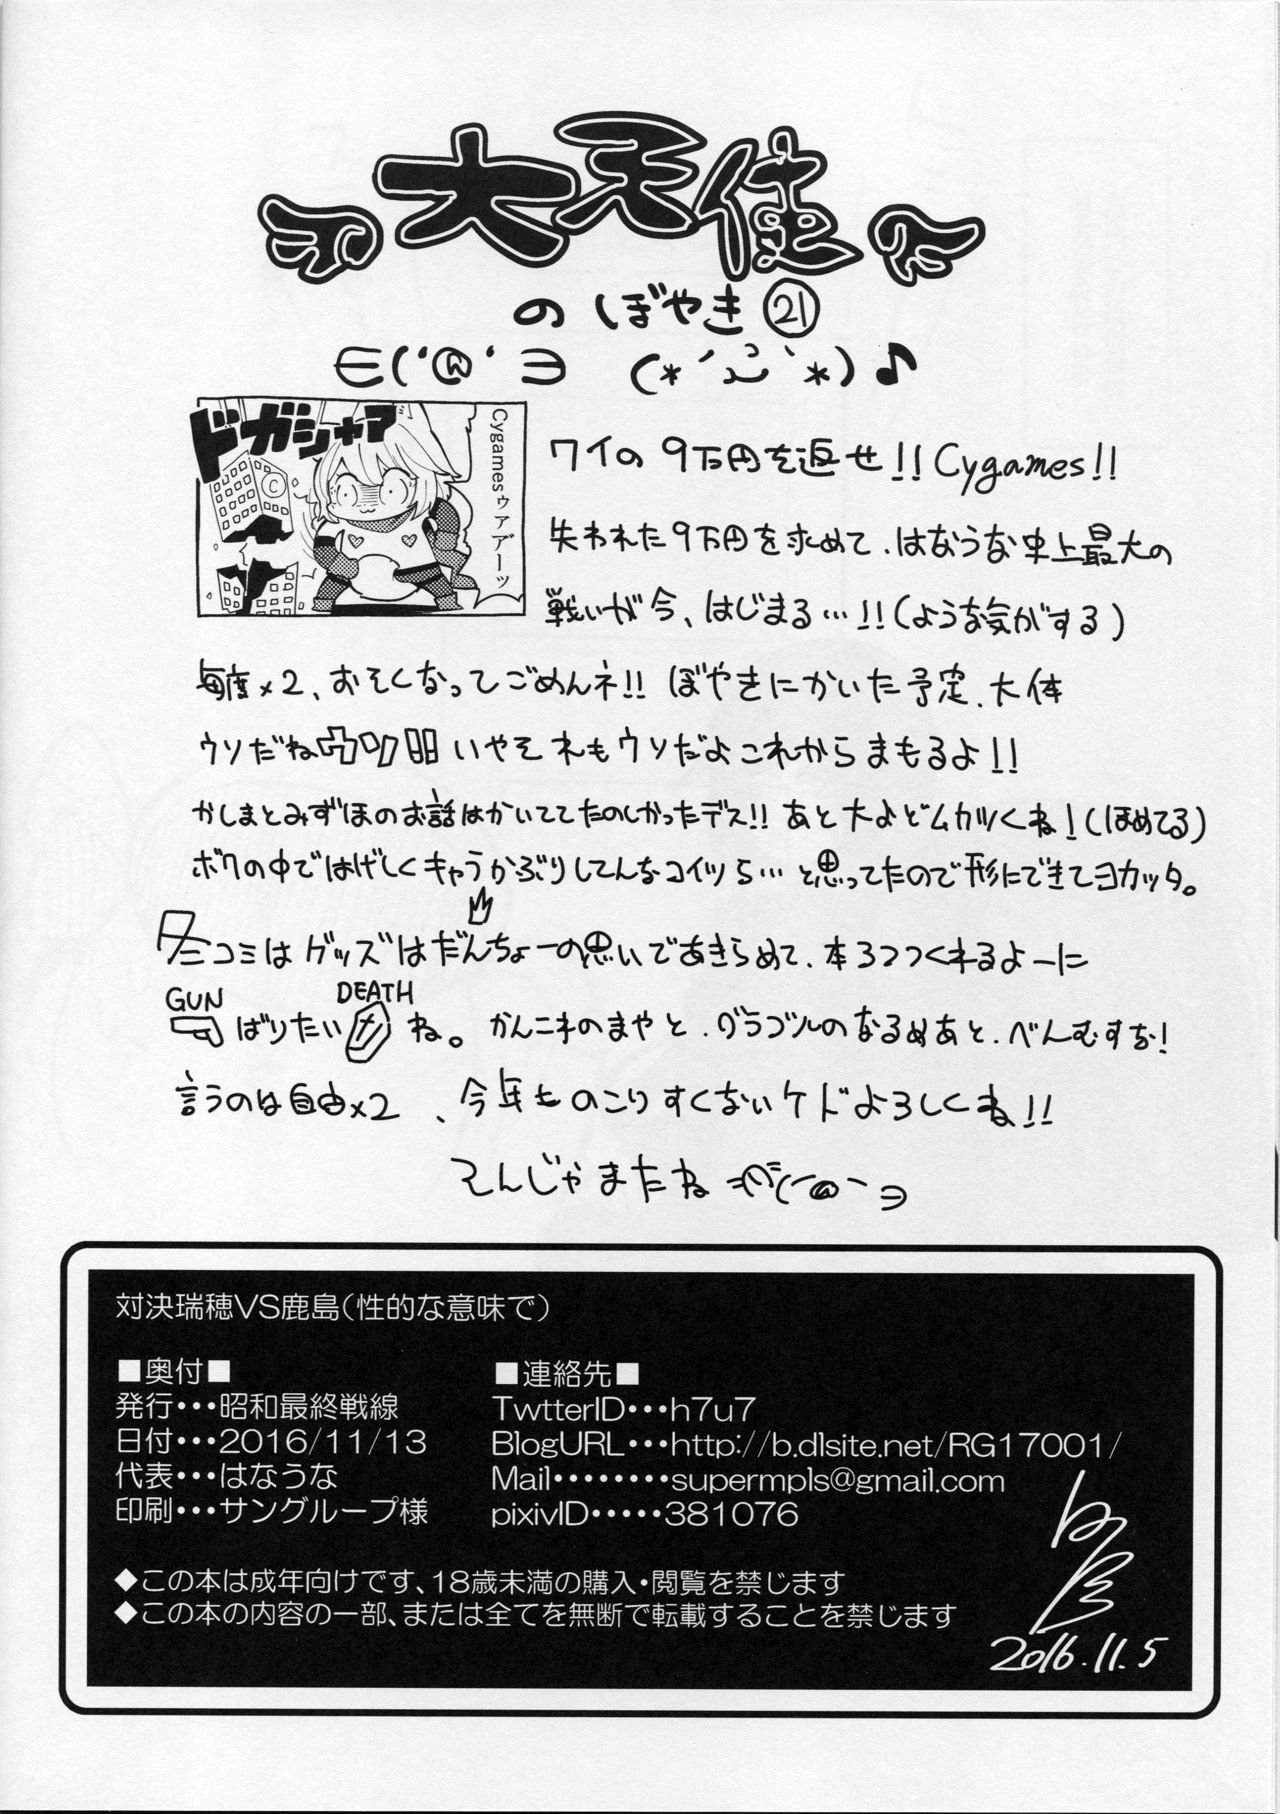 大天使
のぼやき㉑
∈('@'∋ (*´ω`*)♪
ドガシャマ
Cygamesゥアアーッ
©
ワイの9万円を返せ!!Cygames!!
失われた9万円を求めて、はなうな史上最大の
戦いが今、はじまる…!!(ような気がする)
毎度×2、おそくなってごめんネ!!ぼやきにかいた予定、大体
ウソだねウソ!!いやそれもウソだよこれからまもるよ!!
かしまとみずほのお話はかいててたのしかったデス!!あと大よどムカツくね!(ほめてる)
ボクの中ではげしくキャラかぶりしてんなコイツら…と思ってたので形にできてヨカッタ。
冬コミはグッズはだんちょーの思いであきらめて、本3つつくれるよーに
GUN DEATH
ばりたいね。かんこれのまやと、グラブルのなるめあと、べんむすな!
言うのは自由×2、今年ものこりすくないケドよろしくね!!
そんじゃまたね
対決瑞穂VS鹿島(性的な意味で)
■奥付■
発行･･･昭和最終戦線
日付･･･2016/11/13
代表･･･はなうな
印刷･･･サングループ様
■連絡先■
TwtterID･･･h7u7
BlogURL･･･http://b.dlsite.net/RG17001/
Mail････････supermpls@gmail.com
pixivID･････381076
◆この本は成年向けです、18歳未満の購入・閲覧を禁じます
◆この本の内容の一部、または全てを無断で転載することを禁じます
2016.11.5